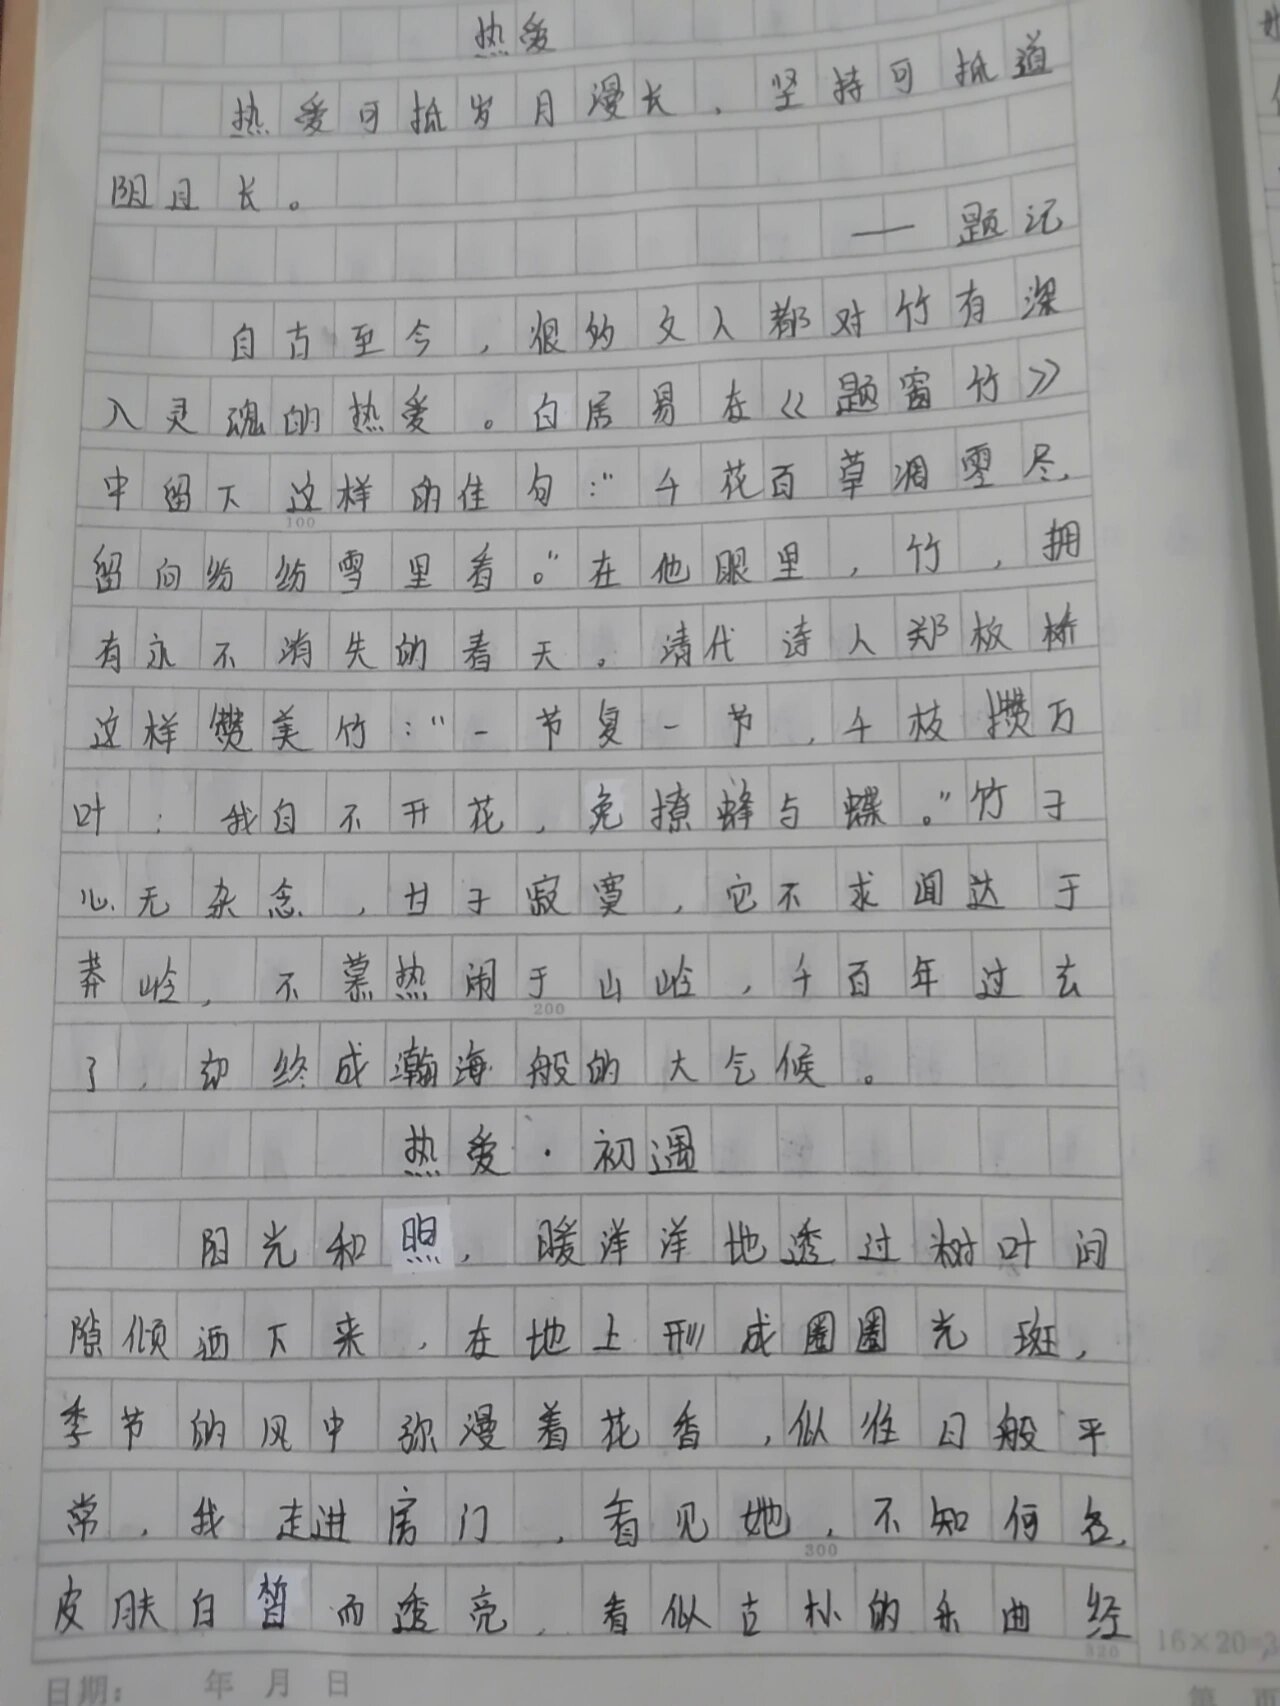 热爱
热爱可抵岁月漫长，坚持可抵道
阻且长。
——题记
自古至今，很的文人都对竹有深
入灵魂的热爱。白居易在《题窗竹》
中留下这样的佳句：“千花百草凋零尽，
100
留向纷纷雪里看。”在他眼里，竹，拥
有永不消失的春天。清代诗人郑板桥
这样赞美竹：“一节复一节，千枝攒万
叶；我自不开花，免撩蜂与蝶。”竹子
心无杂念，甘于寂寞，它不求闻达于
莽岭，不慕热闹于山岭，千百年过去
200
了，却终成瀚海般的大气候。
热爱·初遇
阳光和煦，暖洋洋地透过树叶间
隙倾洒下来，在地上形成圈圈光斑，
季节的风中弥漫着花香，似往日般平
常，我走进房门，看见她，不知何名，
300
皮肤白皙而透亮，看似古朴的乐曲经
320
16×20=3
日期： 年 月 日
第 页